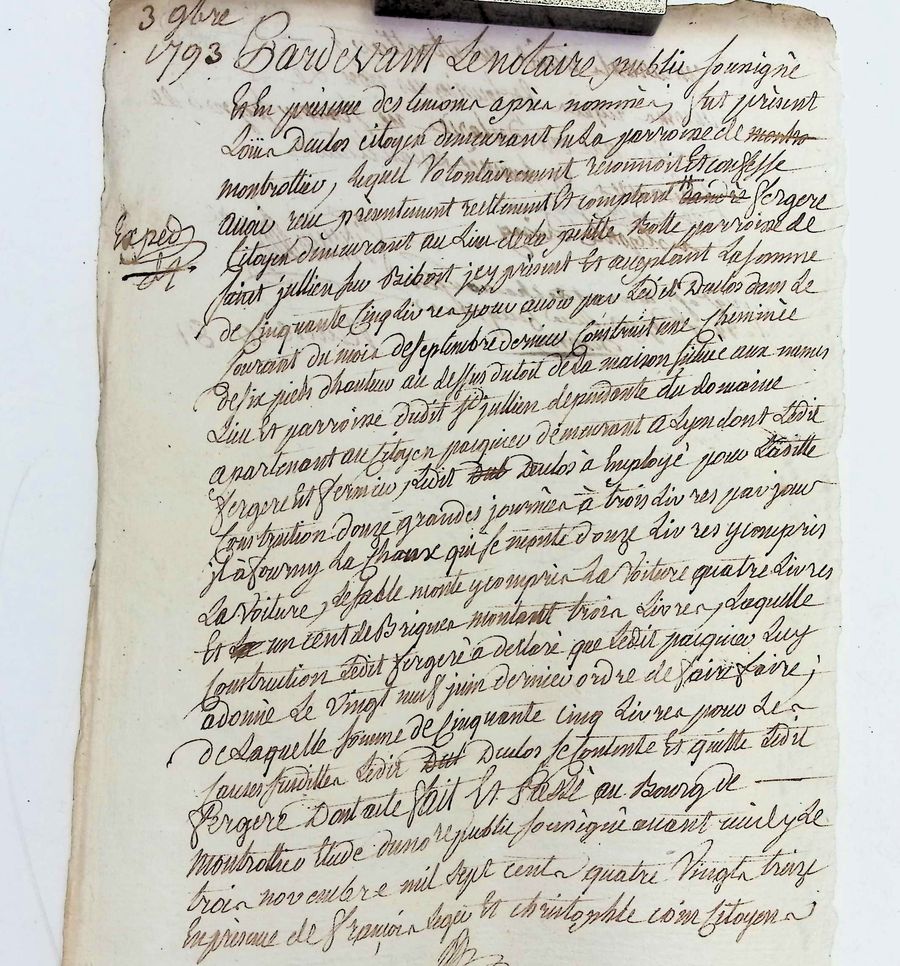 3 9bre
1793 Pardevant Le notaire public sousigné
Et En présence des temoins après nommés, fut présent
Louis Duclos citoyen demeurant En La parroisse de montro
montrottier, lequel Volontairement reconnoit Et confesse
avoir reçu présentement reellement Et comptant fergere
Exped
Citoyen demeurant au Lieu de La petite parroisse de
saint jullien sur Bibost jcy présent Et acceptant La somme
de Cinquante Cinq Livres pour avoir par Ledit Duclos dans Le
Courant du mois de septembre dernier Construit une Cheminée
de six pieds d'hauteur au dessus du toit de La maison située aux memes
Lieu Et parroisse dudit st jullien dependante du domaine
apartenant au Citoyen paiquier demeurant a Lyon dont Ledit
fergere Est fermier, Ledit Duclos à Employé pour Laditte
Construction douze grandes journées à trois Livres par jour
jl a fourny La Chaux qui se monte douze Livres y compris
La Voiture, Le sable monte y compris La Voiture quatre Livres
Et un cent de Briques montant trois Livres, Laquelle
Construction Ledit fergere à declaré que Ledit paiquier Luy
à donné Le Vingt neuf juin dernier ordre de faire faire;
de Laquelle somme de Cinquante cinq Livres pour Les
Causes susdittes Ledit Duclos se Contente Et quitte Ledit
fergere Dont acte fait Et Passé au Bourg de
montrottier Etude du no re public sousigné avant midy Le
trois novembre mil sept cents quatre Vingts treize
En présence de françois Et christophle citoyens